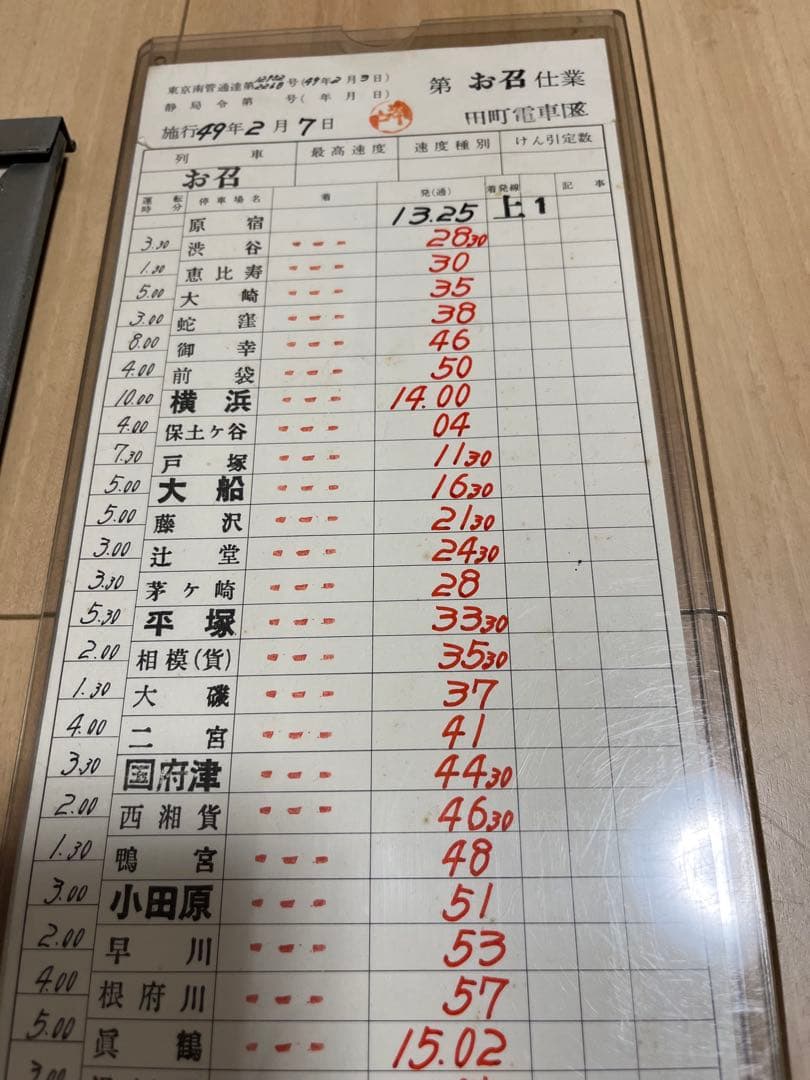 東京南管通達第12932 2268号(49年2月3日)
静局令第 号(年月日)
施行49年2月7日
第お召仕業
田町電車区
列車 最高速度 速度種別 けん引定数
お召
運転時分 停車場名 着 発(通) 着発線 記事
原宿 13.25 上1
3.30 渋谷 --- 2830
1.30 恵比寿 --- 30
5.00 大崎 --- 35
3.00 蛇窪 --- 38
8.00 御幸 --- 46
4.00 前袋 --- 50
10.00 横浜 --- 14.00
4.00 保土ヶ谷 --- 04
7.30 戸塚 --- 1130
5.00 大船 --- 1630
5.00 藤沢 --- 2130
3.00 辻堂 --- 2430
3.30 茅ヶ崎 --- 28
5.30 平塚 --- 3330
2.00 相模(貨) --- 3530
1.30 大磯 --- 37
4.00 二宮 --- 41
3.30 国府津 --- 4430
2.00 西湘貨 --- 4630
1.30 鴨宮 --- 48
3.00 小田原 --- 51
2.00 早川 --- 53
4.00 根府川 --- 57
5.00 眞鶴 --- 15.02